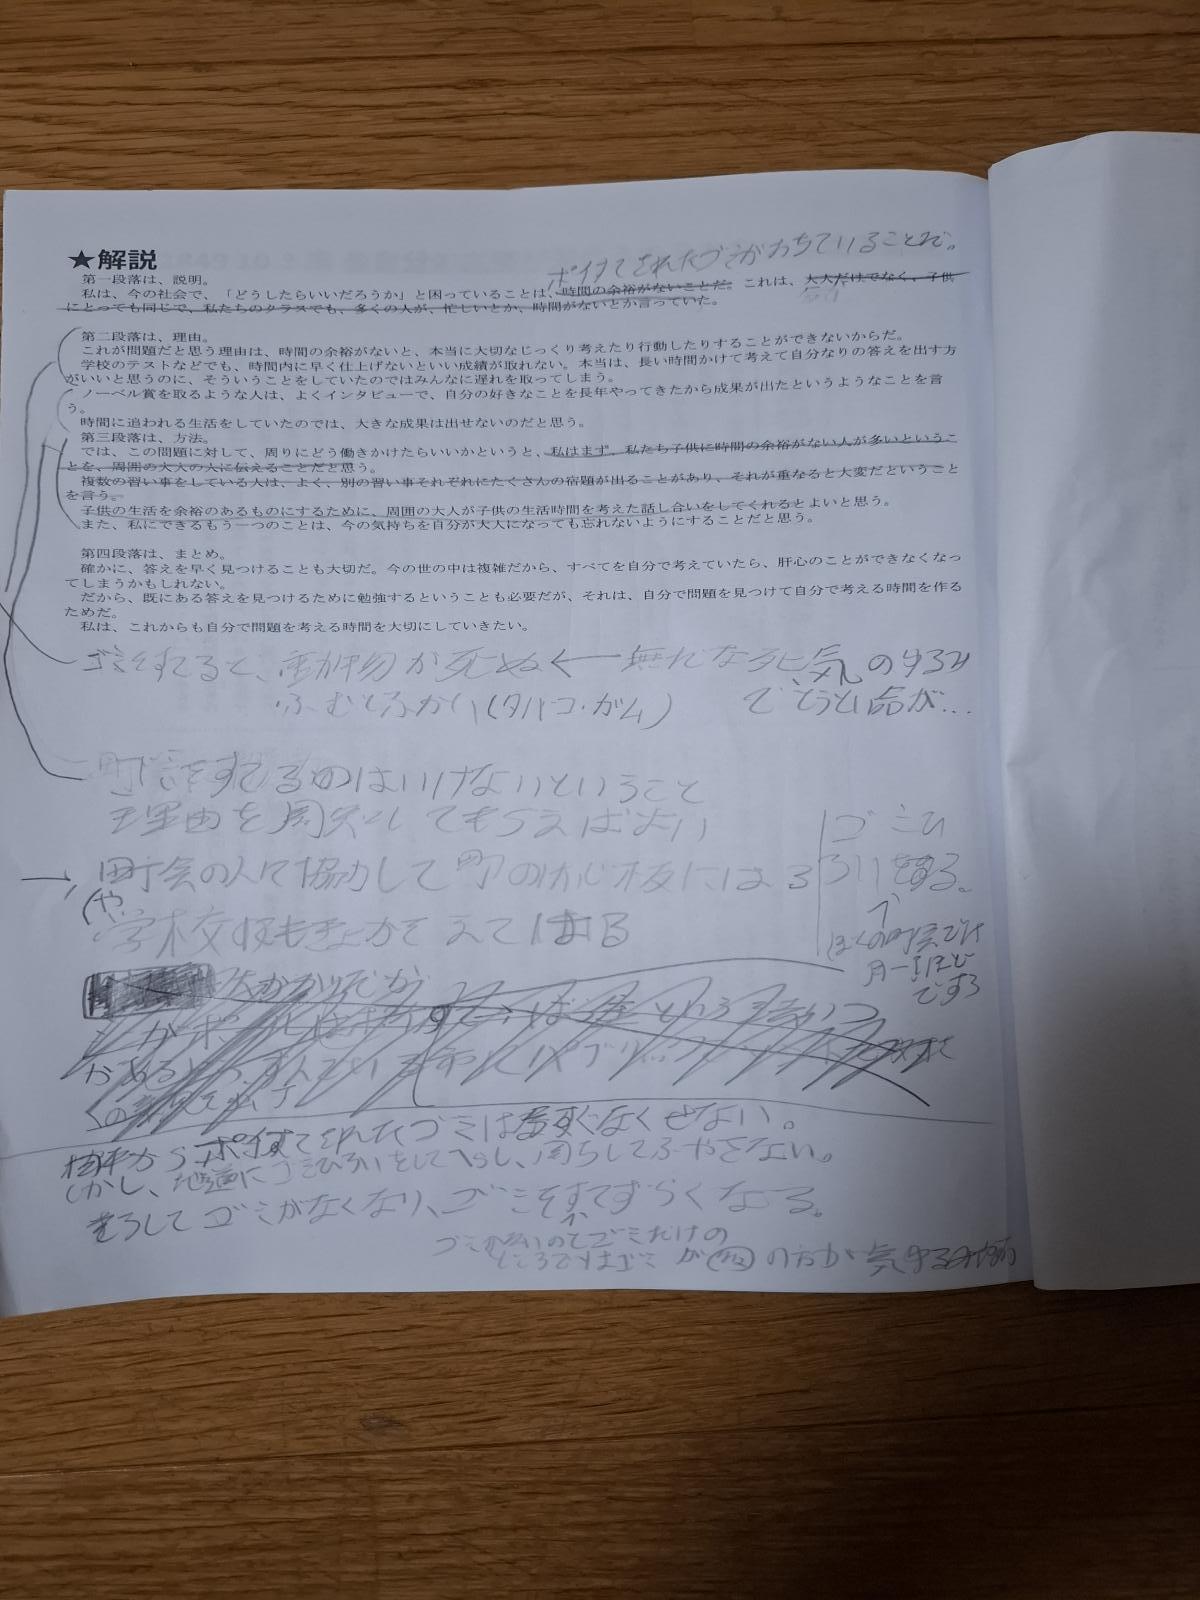 ★解説
ポイすてされたゴミがおちていることだ。
第一段落は、説明。
私は、今の社会で、「どうしたらいいだろうか」と困っていることは、時間の余裕がないことだ。これは、大人だけでなく、子供
にとっても同じで、私たちのクラスでも、多くの人が、忙しいとか、時間がないとか言っていた。
第二段落は、理由。
これが問題だと思う理由は、時間の余裕がないと、本当に大切なじっくり考えたり行動したりすることができないからだ。
学校のテストなどでも、時間内に早く仕上げないといい成績が取れない。本当は、長い時間かけて考えて自分なりの答えを出す方
がいいと思うのに、そういうことをしていたのではみんなに遅れを取ってしまう。
ノーベル賞を取るような人は、よくインタビューで、自分の好きなことを長年やってきたから成果が出たというようなことを言
う。
時間に追われる生活をしていたのでは、大きな成果は出せないのだと思う。
第三段落は、方法。
では、この問題に対して、周りにどう働きかけたらいいかというと、私はまず、私たち子供に時間の余裕がない人が多いというこ
とを、周囲の大人の人に伝えることだと思う。
複数の習い事をしている人は、よく、別の習い事それぞれにたくさんの宿題が出ることがあり、それが重なると大変だということ
を言う。
子供の生活を余裕のあるものにするために、周囲の大人が子供の生活時間を考えた話し合いをしてくれるとよいと思う。
また、私にできるもう一つのことは、今の気持ちを自分が大人になっても忘れないようにすることだと思う。
第四段落は、まとめ。
確かに、答えを早く見つけることも大切だ。今の世の中は複雑だから、すべてを自分で考えていたら、肝心のことができなくなっ
てしまうかもしれない。
だから、既にある答えを見つけるために勉強するということも必要だが、それは、自分で問題を見つけて自分で考える時間を作る
ためだ。
私は、これからも自分で問題を考える時間を大切にしていきたい。
ゴミをすてると、動物が死ぬ←無だな死 気のゆるみ
ふむとふかい(タバコ・ガム) でとうとい命が…
すてるのはいけないということ
理由を周知してもらえばよい
→町会の人で協力して町の板にはる
(や
学校にもはる
ゴミひ
ろいをする。
↑
ぼくの町会では
月一ほど
です
ポイすてされたゴミはすぐなくせない。
しかし、地道にゴミひろいをしてへらし、周ちしてふやさない。
そうしてゴミがなくなり、ゴミをすてずらくなる。
↑
ゴミがないのでゴミだけの
ところではゴミ の方が気ゆるみ